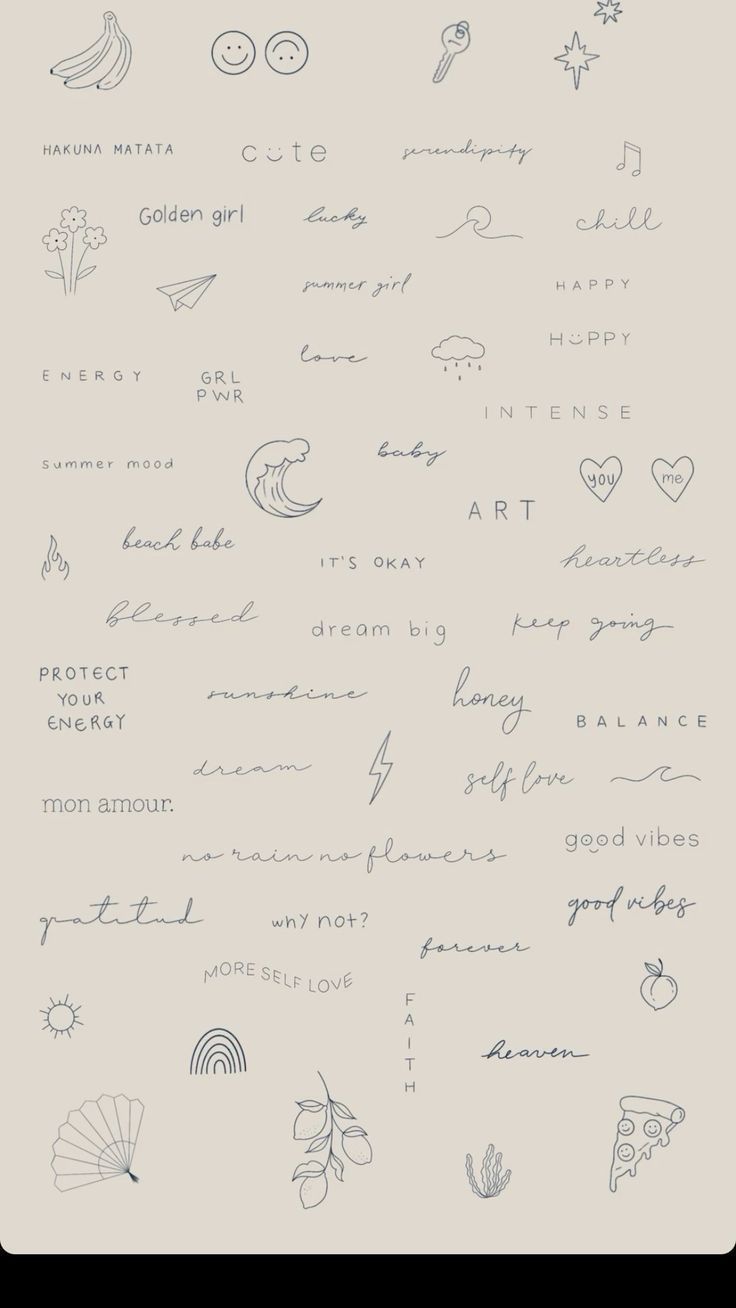 HAKUNA MATATA
cute
serendipity
Golden girl
lucky
chill
summer girl
HAPPY
love
HÜPPY
ENERGY
GRL
PWR
INTENSE
summer mood
baby
you
me
ART
beach babe
IT'S OKAY
heartless
blessed
dream big
keep going
PROTECT
YOUR
ENERGY
sunshine
honey
BALANCE
dream
self love
mon amour.
no rain no flowers
good vibes
gratitud
why not?
good vibes
forever
MORE SELF LOVE
FAITH
heaven